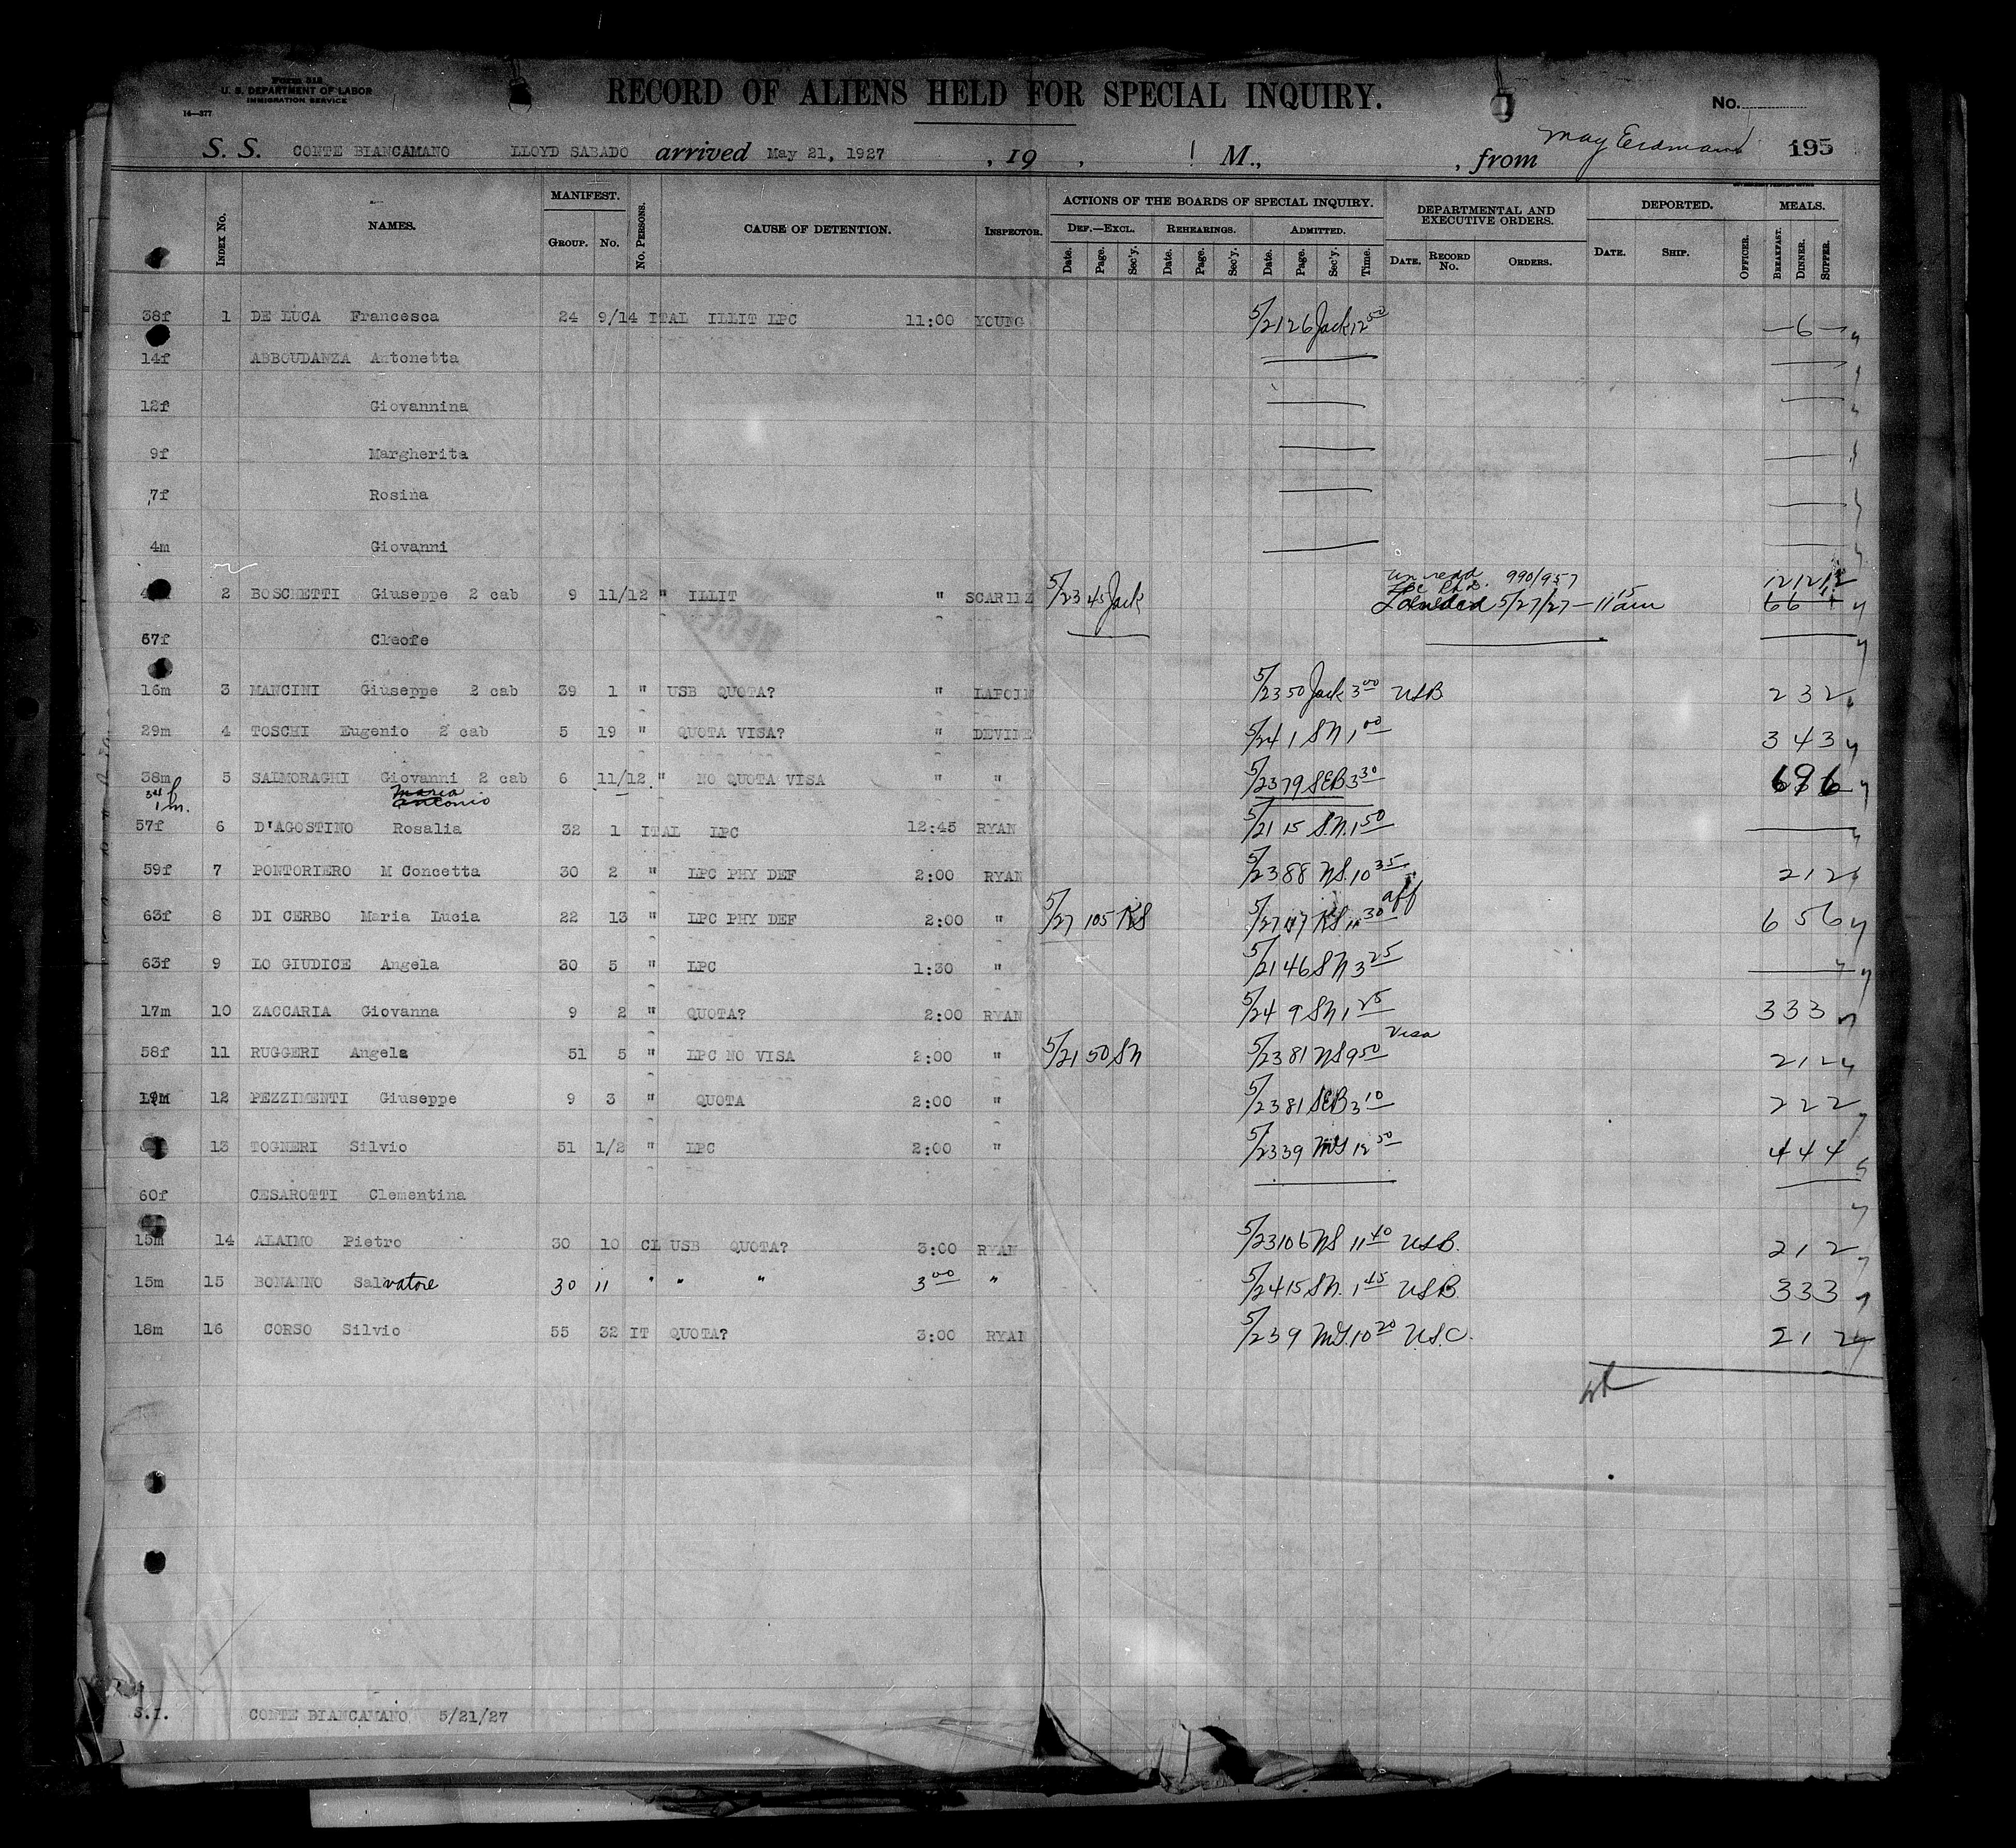 Form 518
U. S. DEPARTMENT OF LABOR
IMMIGRATION SERVICE
14—377
RECORD OF ALIENS HELD FOR SPECIAL INQUIRY.
No.
S. S. CONTE BIANCAMANO LLOYD SABADO arrived May 21, 1927 , 19 , M., , from May Erdmann 195
Index No. NAMES. MANIFEST. Group. No. No. Persons. CAUSE OF DETENTION. Inspector. ACTIONS OF THE BOARDS OF SPECIAL INQUIRY. Def.—Excl. Date. Page. Sec'y. Rehearings. Date. Page. Sec'y. Admitted. Date. Page. Sec'y. Time. DEPARTMENTAL AND EXECUTIVE ORDERS. Date. Record No. Orders. DEPORTED. Date. Ship. Officer. MEALS. Breakfast. Dinner. Supper.
38f 1 DE LUCA Francesca 24 9/14 ITAL ILLIT LPC 11:00 YOUNG 5/21 26 Jack 12 50 — 6 —
14f ABBOUDANZA Antonetta
12f Giovannina
9f Margherita
7f Rosina
4m Giovanni
2 BOSCHETTI Giuseppe 2 cab 9 11/12 " ILLIT " SCARILZ 5/23 45 Jack 990/957 5/27/27 — 11 15 am 12 12 12 6 6
67f Cleofe
16m 3 MANCINI Giuseppe 2 cab 39 1 " USB QUOTA? " LAPOIN 5/23 50 Jack 3 00 USB 2 3 2
29m 4 TOSCHI Eugenio 2 cab 5 19 " QUOTA VISA? " DEVINE 5/24 1 SN 1 00 3 4 3
38m 5 SALMORAGHI Giovanni 2 cab 6 11/12 " NO QUOTA VISA " " 5/23 79 SEB 3 30 6 9 6
1 m. Maria
Antonio
57f 6 D'AGOSTINO Rosalia 32 1 ITAL LPC 12:45 RYAN 5/21 15 S.N. 1 50
59f 7 PONTORIERO M Concetta 30 2 " LPC PHY DEF 2:00 RYAN 5/23 88 NS. 10 35 2 1 2
63f 8 DI CERBO Maria Lucia 22 13 " LPC PHY DEF 2:00 " 5/27 105 RS 5/27 107 RS 11 30 aff 6 5 6
63f 9 LO GIUDICE Angela 30 5 " LPC 1:30 " 5/21 46 SN 3 25
17m 10 ZACCARIA Giovanna 9 2 " QUOTA? 2:00 RYAN 5/24 9 SN 1 25 3 3 3
58f 11 RUGGERI Angela 51 5 " LPC NO VISA 2:00 " 5/21 50 SN 5/23 81 NS 9 50 Visa 2 1 2
19m 12 PEZZIMENTI Giuseppe 9 3 " QUOTA 2:00 " 5/23 81 SEB 3 10 2 2 2
13 TOGNERI Silvio 51 1/2 " LPC 2:00 " 5/23 39 MG 12 50 4 4 4
60f CESAROTTI Clementina
15m 14 ALAIMO Pietro 30 10 CL USB QUOTA? 3:00 RYAN 5/23 106 NS 11 40 USB. 2 1 2
15m 15 BONANNO Salvatore 30 11 " " " 3 00 " 5/24 15 SN. 1 45 USB. 3 3 3
18m 16 CORSO Silvio 55 32 IT QUOTA? 3:00 RYAN 5/23 9 MG. 10 20 U.S.C. 2 1 2
S.I. CONTE BIANCAMANO 5/21/27